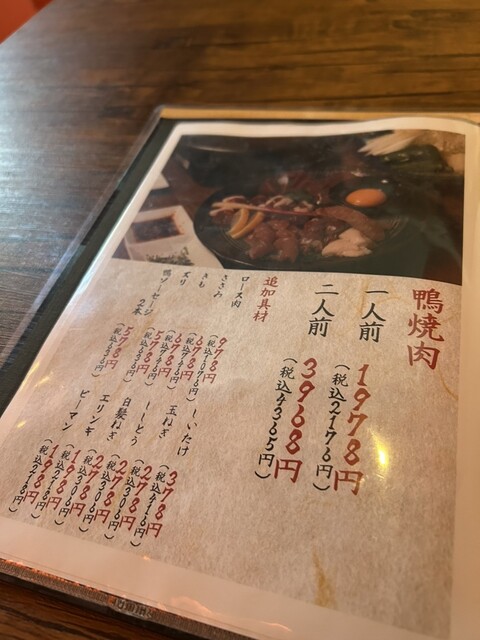 鴨焼肉
一人前 1978円
(税込2176円)
二人前 3968円
(税込4365円)
追加具材
ロース肉 978円
(税込1076円)
ささみ 678円
(税込746円)
きも 678円
(税込746円)
ズリ 578円
鴨ソーセージ 2本 578円
しいたけ 378円
(税込416円)
玉ねぎ 278円
(税込306円)
ししとう 278円
(税込306円)
白髪ねぎ 278円
(税込306円)
エリンギ 198円
(税込218円)
ピーマン 198円
(税込218円)